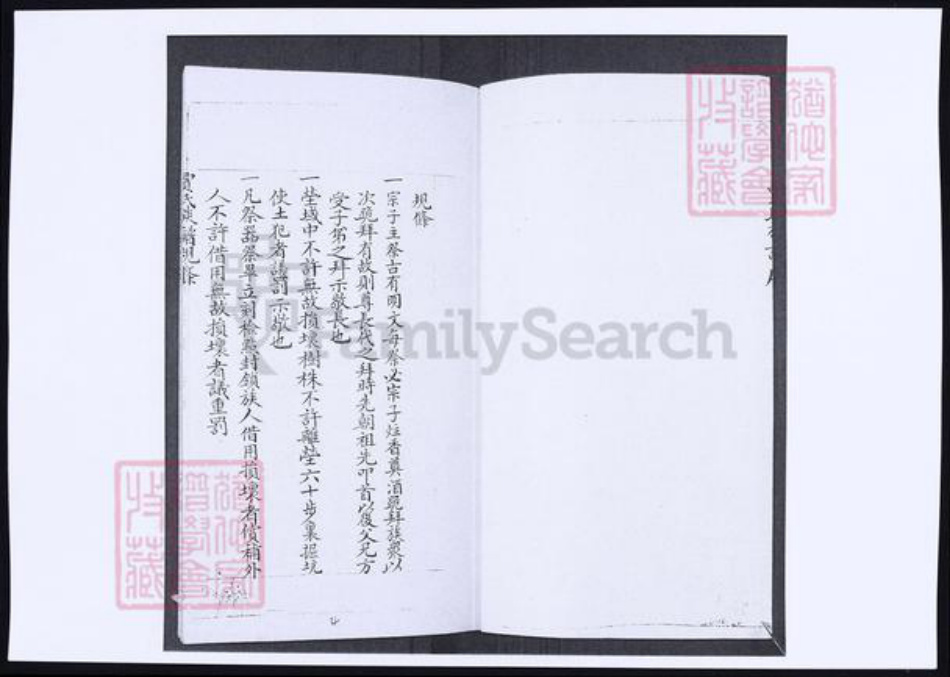 規條
一宗子主祭古有明文每祭必宗子炷香奠酒跪拜族衆以
次跪拜有故則尊長代之拜時先朝祖先叩首以後父兄方
受子弟之拜示敬長也
一塋域中不許無故損壞樹株不許離塋六十步裏掘坑
使土犯者議罰示敬也
一凡祭器祭畢立刻檢點封鎖族人借用損壞者償補外
人不許借用無故損壞者議重罰
氏 譜規條
譜學會
收藏
FamilySearch